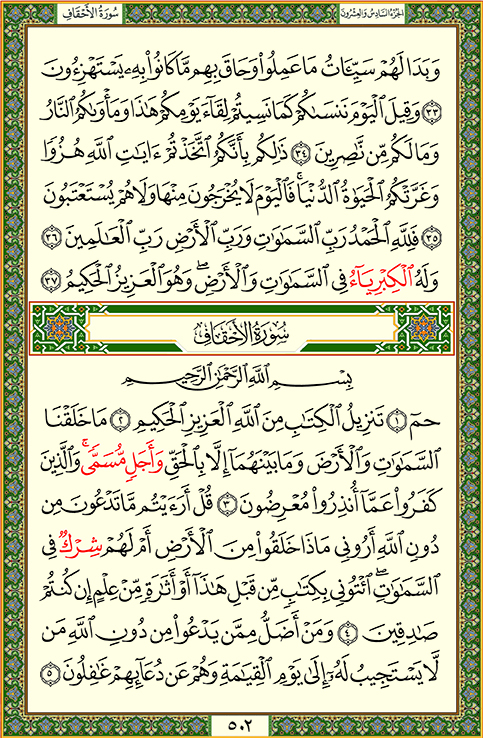 الجزء السادس والعشرون
سورة الأحقاف
وَبَدَا لَهُمْ سَيِّـَٔاتُ مَا عَمِلُوا۟ وَحَاقَ بِهِم مَّا كَانُوا۟ بِهِۦ يَسْتَهْزِءُونَ
٣٣ وَقِيلَ ٱلْيَوْمَ نَنسَىٰكُمْ كَمَا نَسِيتُمْ لِقَآءَ يَوْمِكُمْ هَـٰذَا وَمَأْوَىٰكُمُ ٱلنَّارُ
وَمَا لَكُم مِّن نَّـٰصِرِينَ ٣٤ ذَٰلِكُم بِأَنَّكُمُ ٱتَّخَذْتُمْ ءَايَـٰتِ ٱللَّهِ هُزُوًا
وَغَرَّتْكُمُ ٱلْحَيَوٰةُ ٱلدُّنْيَا ۚ فَٱلْيَوْمَ لَا يُخْرَجُونَ مِنْهَا وَلَا هُمْ يُسْتَعْتَبُونَ
٣٥ فَلِلَّهِ ٱلْحَمْدُ رَبِّ ٱلسَّمَـٰوَٰتِ وَرَبِّ ٱلْأَرْضِ رَبِّ ٱلْعَـٰلَمِينَ ٣٦
وَلَهُ ٱلْكِبْرِيَآءُ فِى ٱلسَّمَـٰوَٰتِ وَٱلْأَرْضِ ۖ وَهُوَ ٱلْعَزِيزُ ٱلْحَكِيمُ ٣٧
سُورَةُ الأَحْقَافِ
بِسْمِ ٱللَّهِ ٱلرَّحْمَـٰنِ ٱلرَّحِيمِ
حمٓ ١ تَنزِيلُ ٱلْكِتَـٰبِ مِنَ ٱللَّهِ ٱلْعَزِيزِ ٱلْحَكِيمِ ٢ مَا خَلَقْنَا
ٱلسَّمَـٰوَٰتِ وَٱلْأَرْضَ وَمَا بَيْنَهُمَآ إِلَّا بِٱلْحَقِّ وَأَجَلٍ مُّسَمًّى ۚ وَٱلَّذِينَ
كَفَرُوا۟ عَمَّآ أُنذِرُوا۟ مُعْرِضُونَ ٣ قُلْ أَرَءَيْتُم مَّا تَدْعُونَ مِن
دُونِ ٱللَّهِ أَرُونِى مَاذَا خَلَقُوا۟ مِنَ ٱلْأَرْضِ أَمْ لَهُمْ شِرْكٌ فِى
ٱلسَّمَـٰوَٰتِ ۖ ٱئْتُونِى بِكِتَـٰبٍ مِّن قَبْلِ هَـٰذَآ أَوْ أَثَـٰرَةٍ مِّنْ عِلْمٍ إِن كُنتُمْ
صَـٰدِقِينَ ٤ وَمَنْ أَضَلُّ مِمَّن يَدْعُوا۟ مِن دُونِ ٱللَّهِ مَن
لَّا يَسْتَجِيبُ لَهُۥٓ إِلَىٰ يَوْمِ ٱلْقِيَـٰمَةِ وَهُمْ عَن دُعَآئِهِمْ غَـٰفِلُونَ ٥
٥٠٢